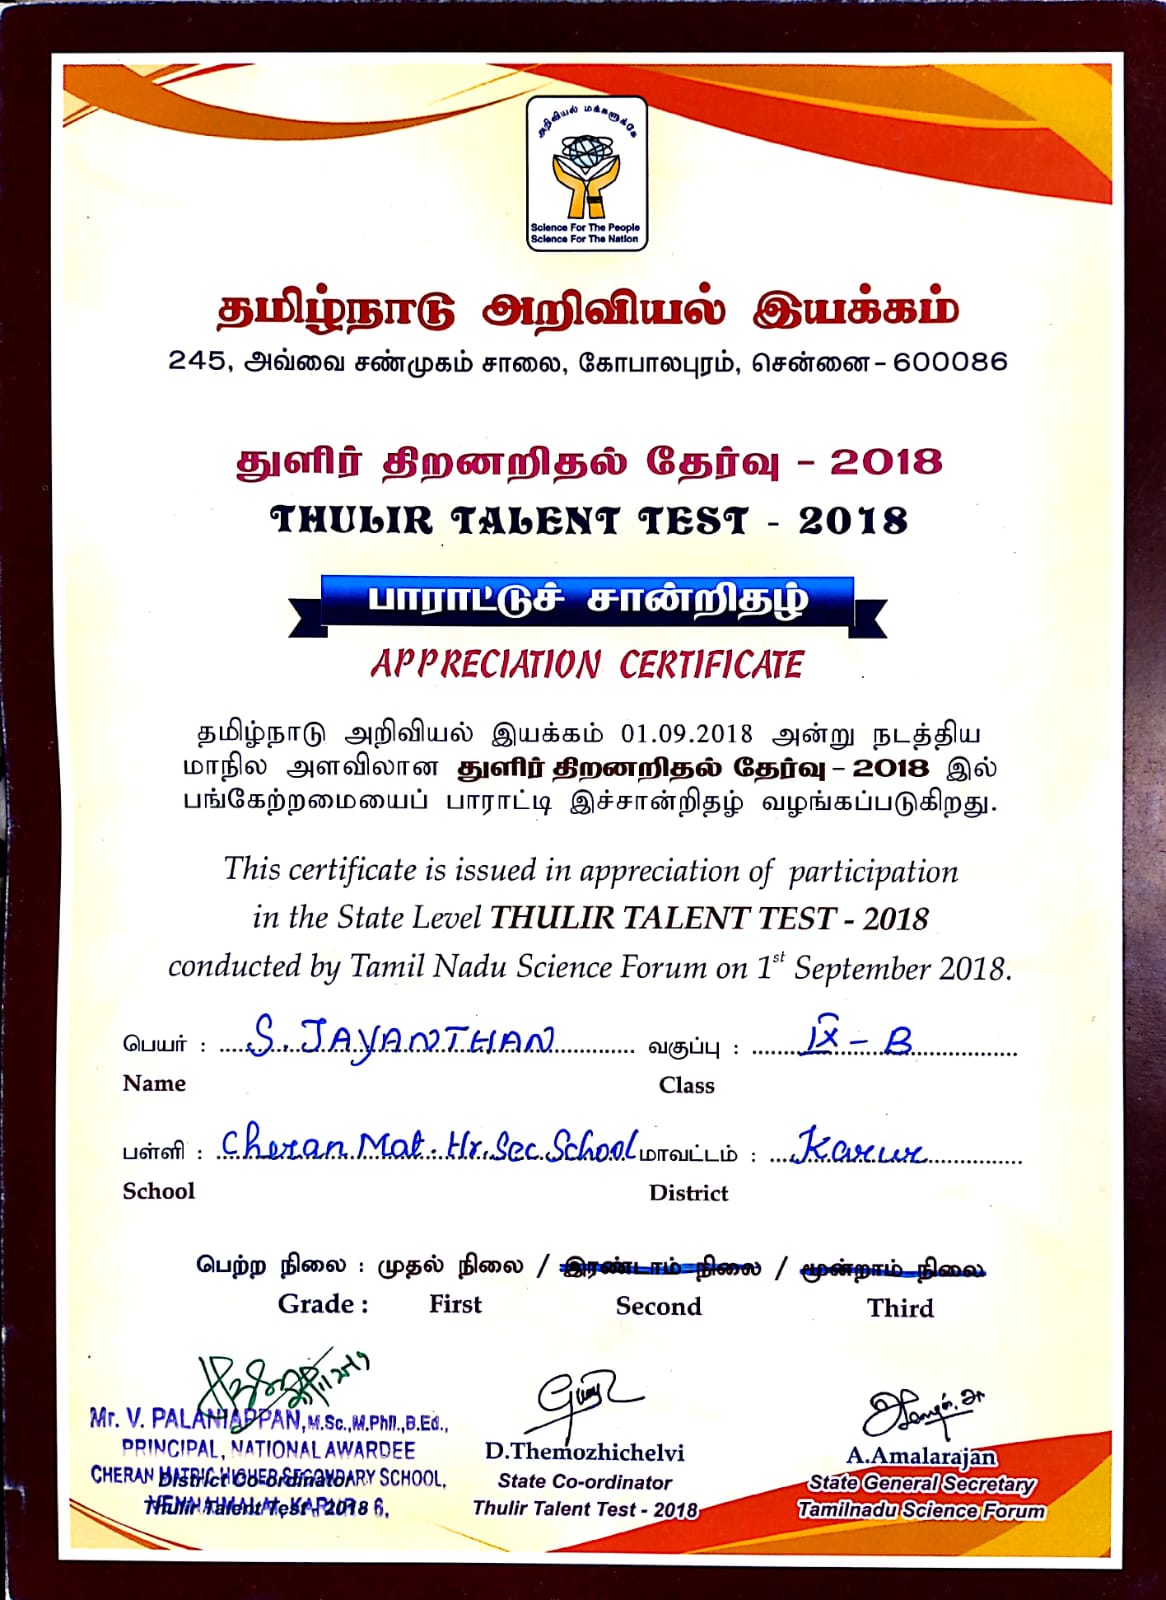 அறிவியல் மக்களுக்கே
Science For The People
Science For The Nation
தமிழ்நாடு அறிவியல் இயக்கம்
245, அவ்வை சண்முகம் சாலை, கோபாலபுரம், சென்னை - 600086
துளிர் திறனறிதல் தேர்வு - 2018
THULIR TALENT TEST - 2018
பாராட்டுச் சான்றிதழ்
APPRECIATION CERTIFICATE
தமிழ்நாடு அறிவியல் இயக்கம் 01.09.2018 அன்று நடத்திய
மாநில அளவிலான துளிர் திறனறிதல் தேர்வு - 2018 இல்
பங்கேற்றமையைப் பாராட்டி இச்சான்றிதழ் வழங்கப்படுகிறது.
This certificate is issued in appreciation of participation
in the State Level THULIR TALENT TEST - 2018
conducted by Tamil Nadu Science Forum on 1st September 2018.
பெயர் : S. JAYANTHAN வகுப்பு : IX - B
Name Class
பள்ளி : Cheran Mat. Hr. Sec. School மாவட்டம் : Karur
School District
பெற்ற நிலை : முதல் நிலை / இரண்டாம் நிலை / மூன்றாம் நிலை
Grade : First Second Third
Mr. V. PALANIAPPAN, M.Sc., M.Phil., B.Ed.,
PRINCIPAL, NATIONAL AWARDEE
CHERAN MATRIC HIGHER SECONDARY SCHOOL,
District Co-ordinator
Thulir Talent Test - 2018
D.Themozhichelvi
State Co-ordinator
Thulir Talent Test - 2018
A.Amalarajan
State General Secretary
Tamilnadu Science Forum